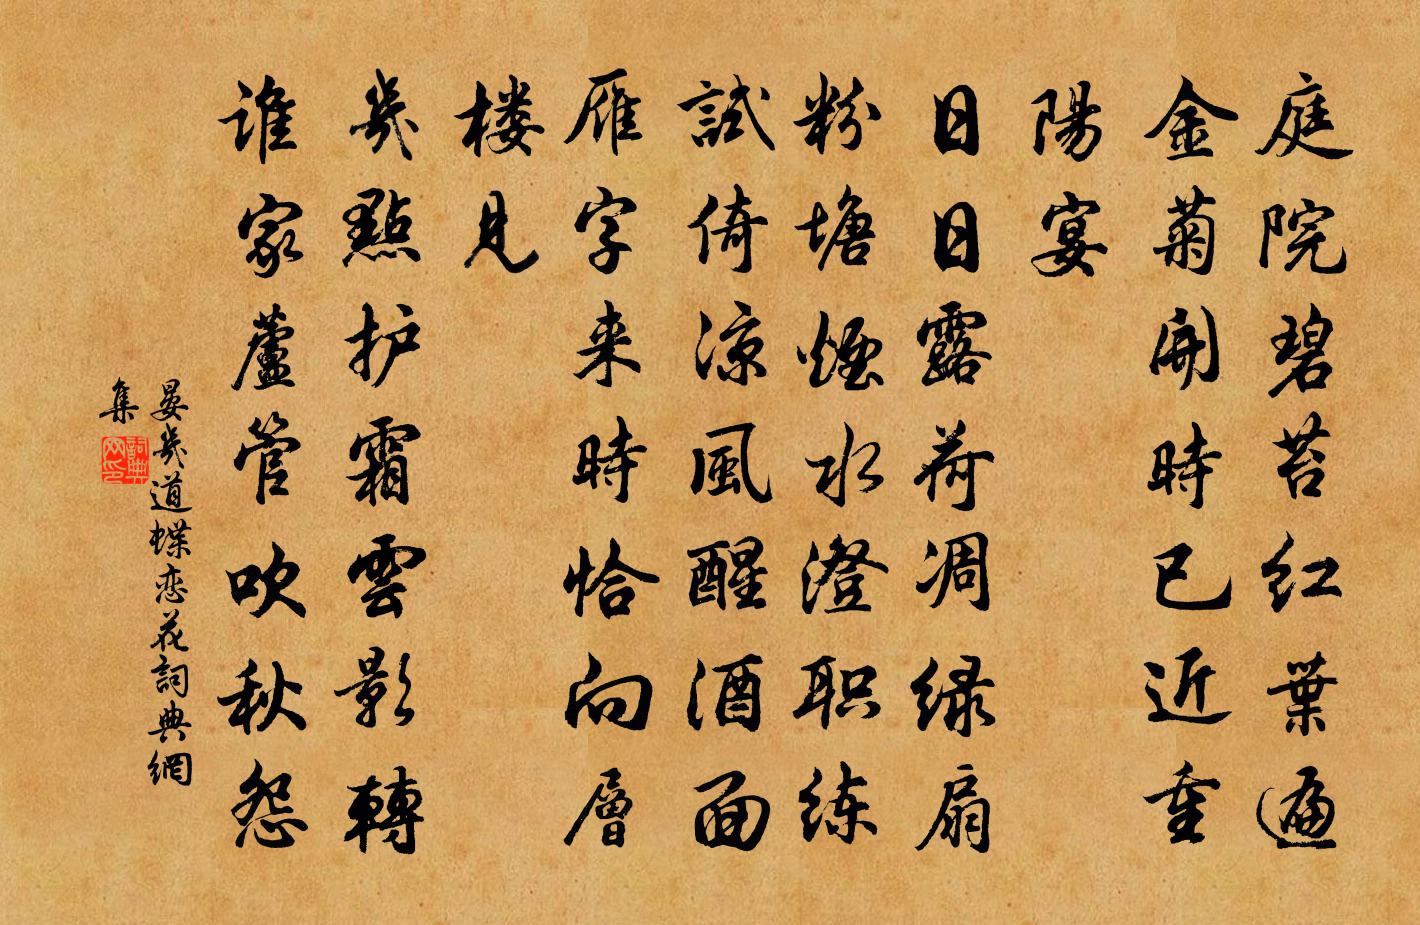 庭院碧苔红葉遍
金菊開時已近重
陽宴
日日露荷凋绿扇
粉塘煙水澄职练
試倚涼風醒酒面
雁字来時恰向層
楼見
幾點护霜雲影轉
谁家蘆管吹秋怨
晏幾道蝶恋花詞典網
集